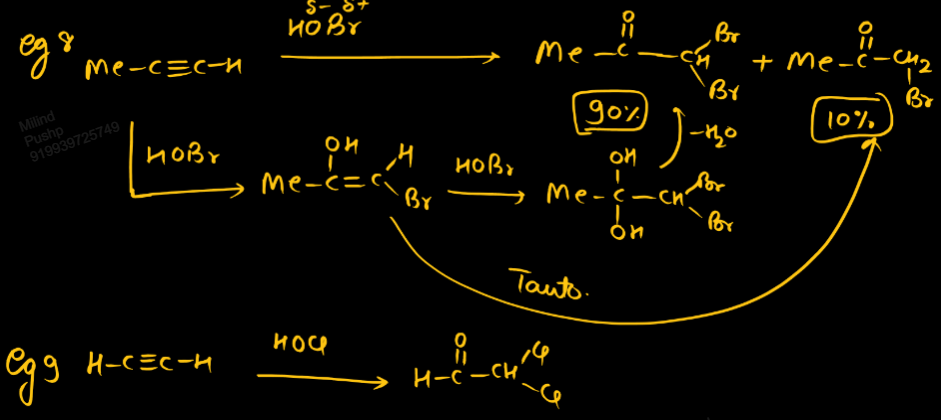 eg 8 Me-C≡C-H HOBr δ- δ+ Me-C(=O)-CH(Br)(Br) + Me-C(=O)-CH2-Br
90% 10%
Milind
Pushp
919939725749
HOBr Me-C(OH)=C(H)(Br) HOBr Me-C(OH)(OH)-CH(Br)(Br) -H2O
Tauto.
eg 9 H-C≡C-H HOCl H-C(=O)-CH(Cl)(Cl)